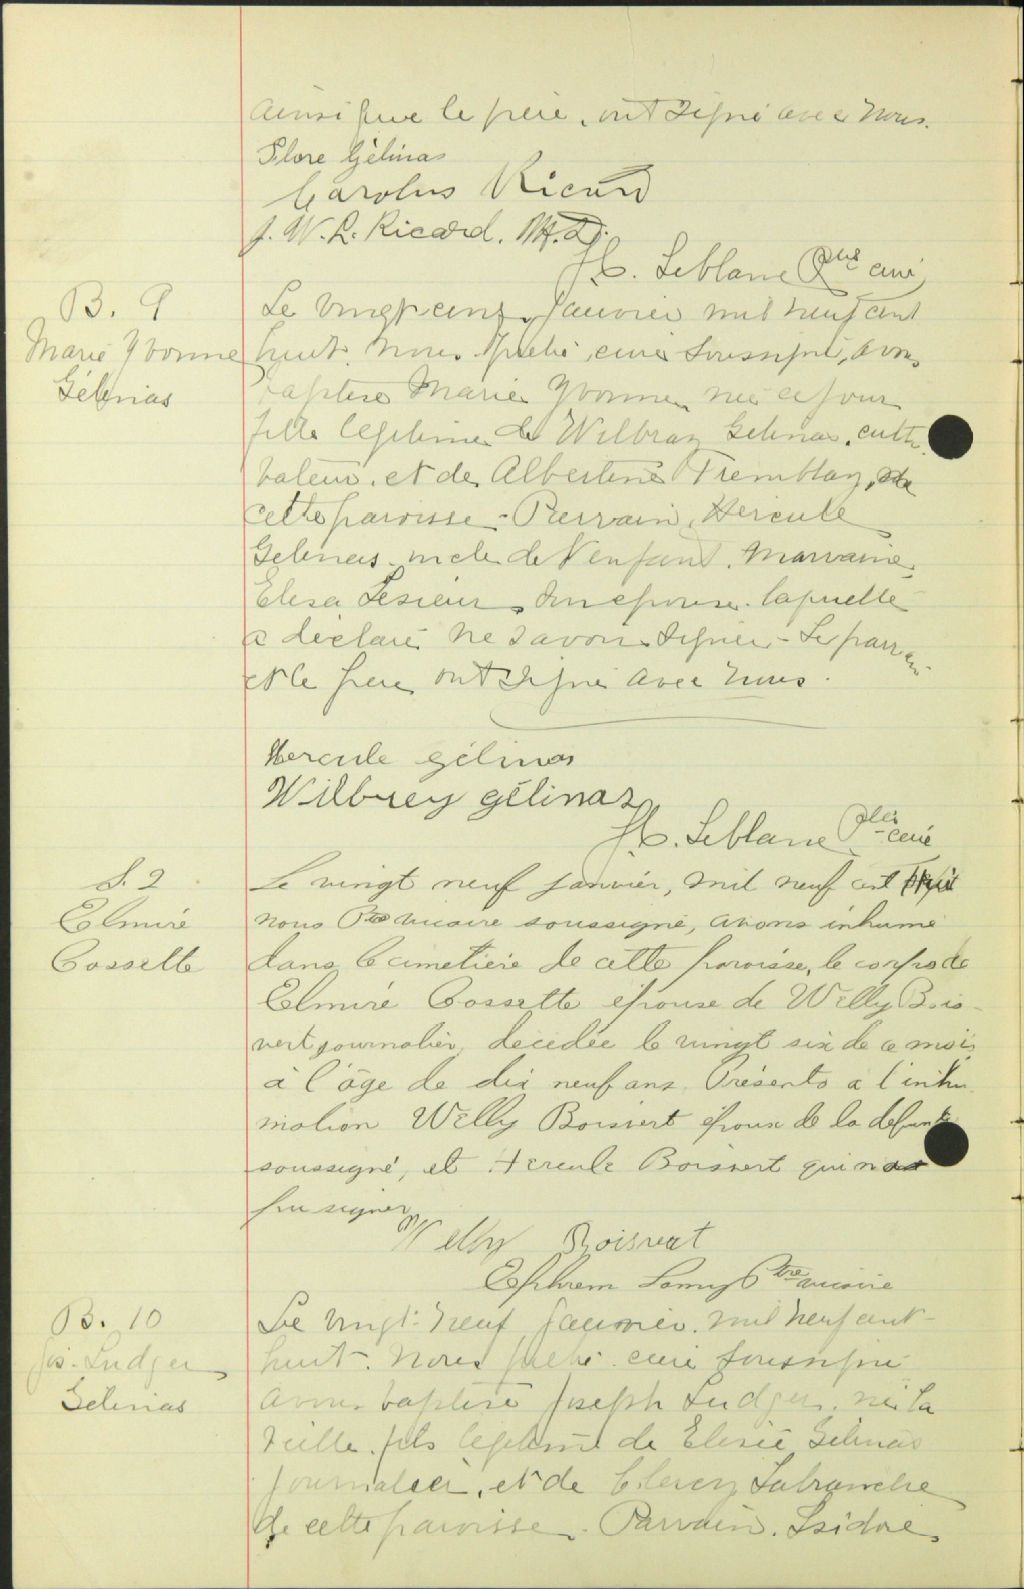 ainsi que le père, ont signé avec nous.
Flore Gélinas
Carolus Ricard
J. W. L. Ricard. M.D.
H. Leblanc Ptre curé
B. 9
Marie Yvonne
Gélinas
Le vingt cinq janvier mil neuf cent
huit nous prêtre curé soussigné, avons
baptisé Marie Yvonne née ce jour
fille légitime de Wilbray Gélinas, culti-
vateur, et de Albertine Tremblay, de
cette paroisse - Parrain, Hercule
Gélinas oncle de l'enfant. Marraine
Elisa Lesieur son épouse laquelle
a déclaré ne savoir signer - Le parrain
et le père ont signé avec nous.
Hercule gélinas
Wilbrey gélinas
H. Leblanc Ptre curé
S. 2
Elmiré
Cossette
Le vingt neuf janvier, mil neuf cent huit
nous Ptre vicaire soussigné, avons inhumé
dans le cimetière de cette paroisse, le corps de
Elmiré Cossette épouse de Willy Bois-
vert journalier, décédée le vingt six de ce mois,
à l'âge de dix neuf ans. Présents à l'inhu-
mation Willy Boisvert époux de la defunte
soussigné, et Hercule Boisvert qui n'a
pu signer
Willy Boisvert
Ephrem Lamy Ptre vicaire
B. 10
Jos. Ludger
Gelinas
Le vingt-neuf janvier mil neuf cent-
huit. Nous prêtre curé soussigné
avons baptisé Joseph Ludger, né la
veille, fils légitime de Elisée Gélinas
journalier, et de Labranche
de cette paroisse. Parrain. Isidore